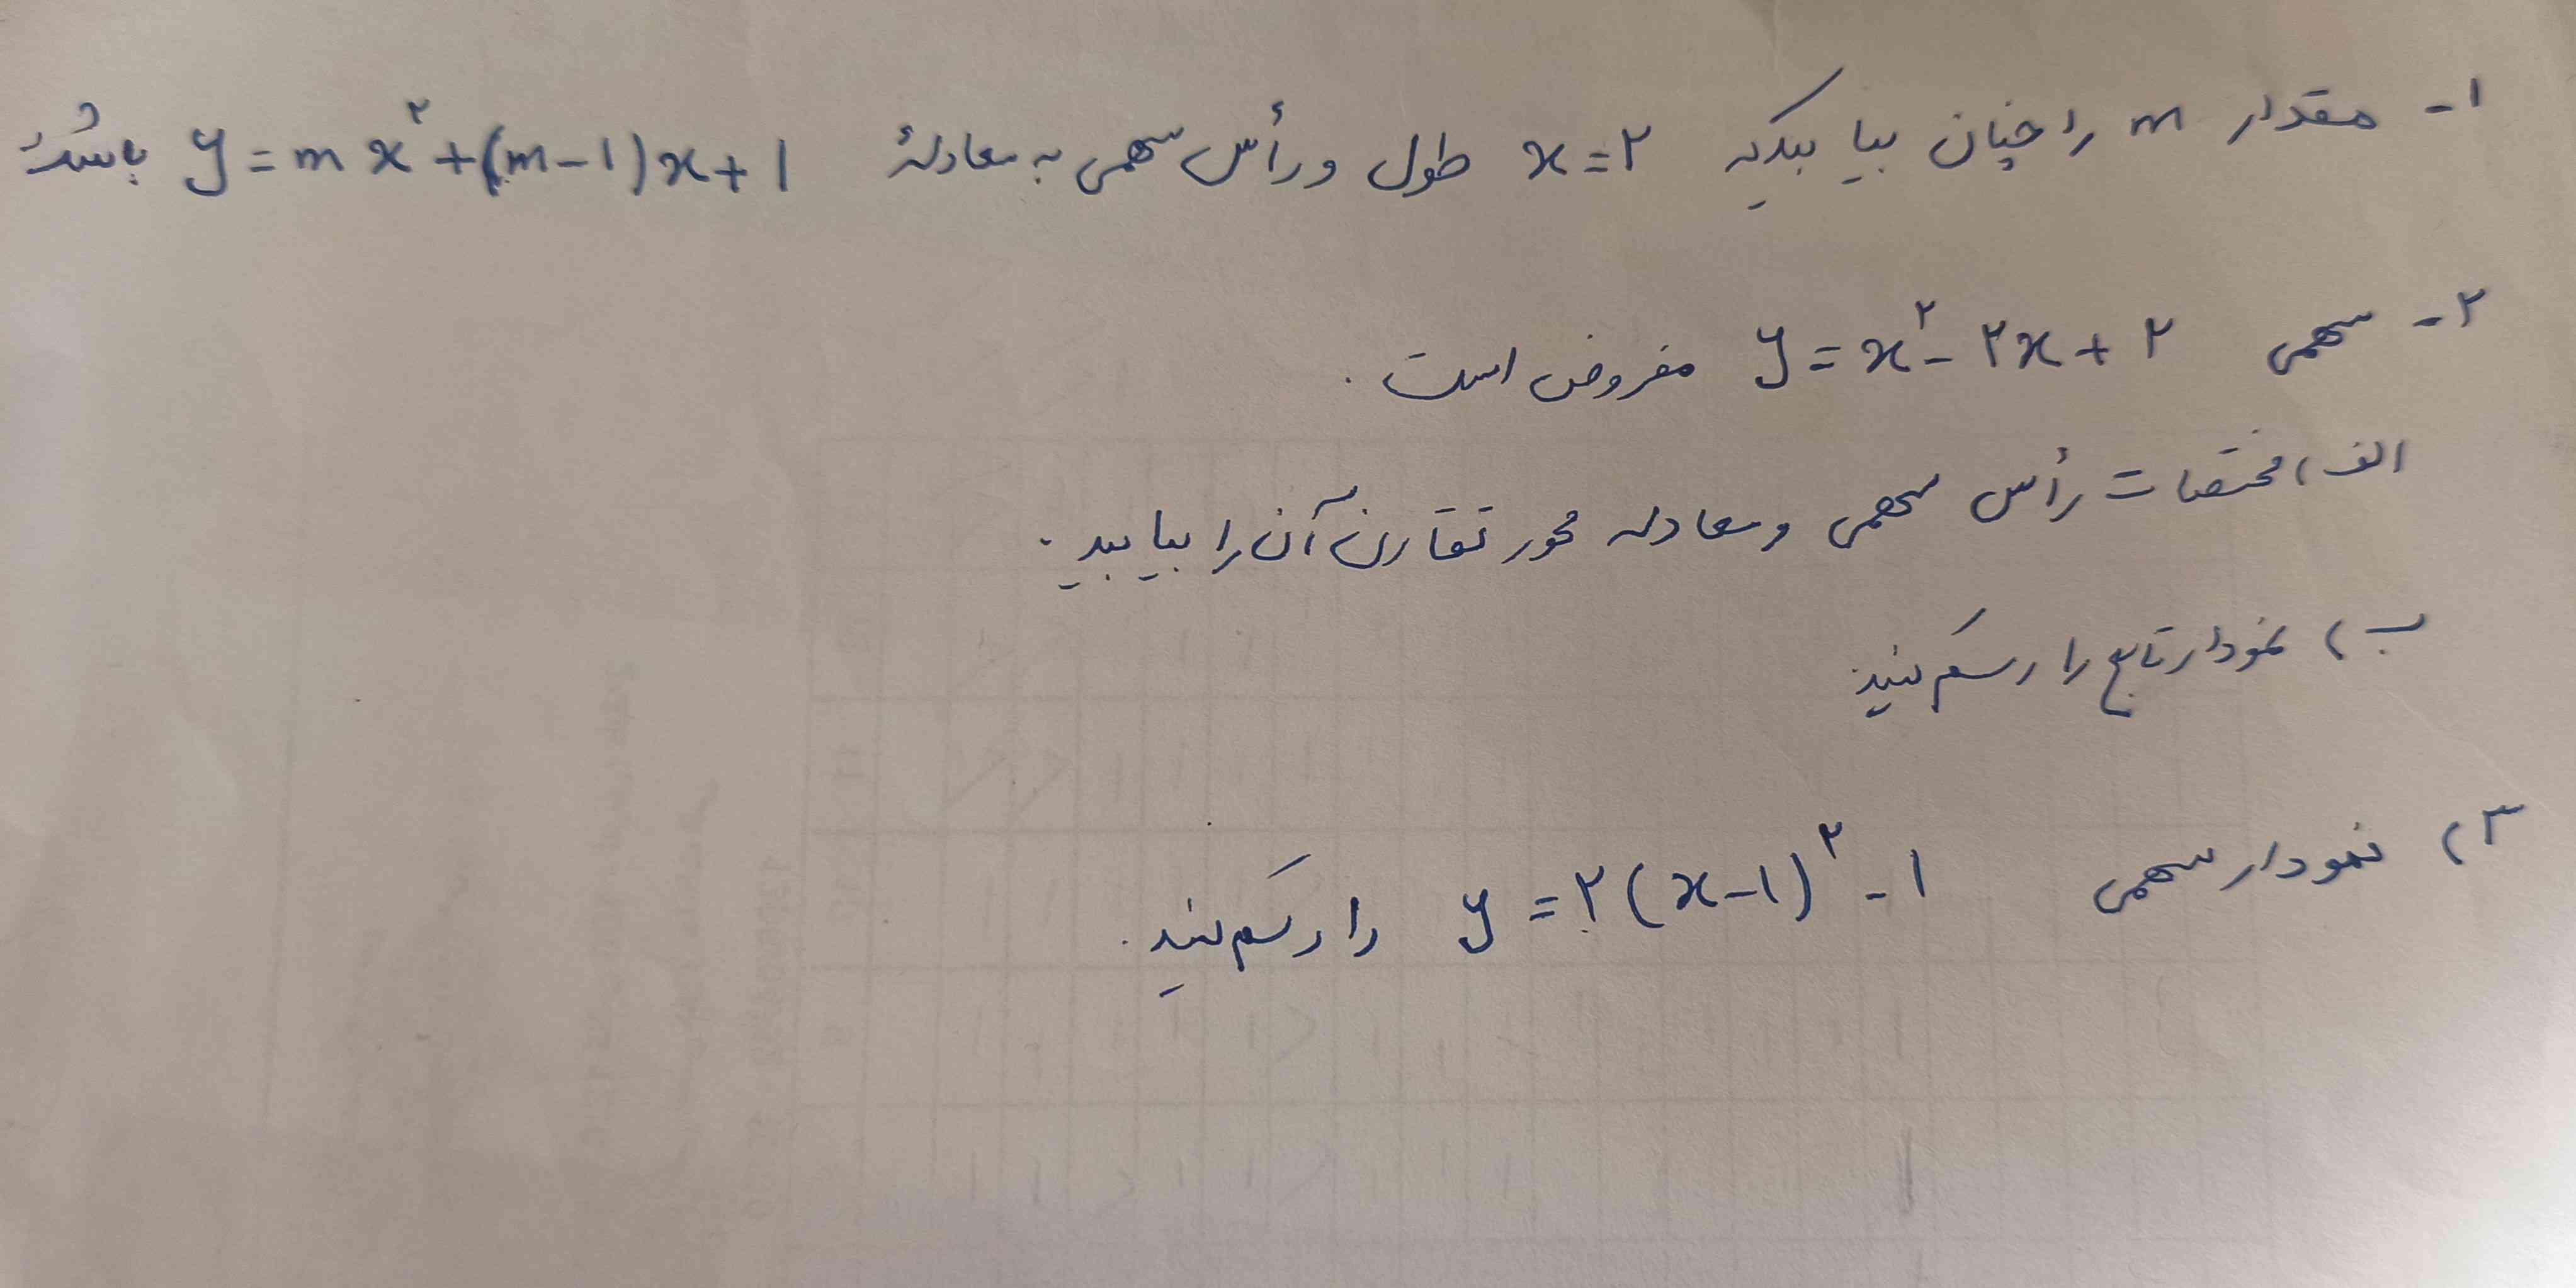 ۱- مقدار m را چنان بیابید که x=۲ طول رأس سهمی به معادلهٔ y = mx^۲ + (m-1)x + 1 باشد
۲- سهمی y = x^۲ - ۲x + ۲ مفروض است.
الف) مختصات رأس سهمی و معادله محور تقارن آن را بیابید.
ب) نمودار تابع را رسم کنید
۳) نمودار سهمی y = ۲(x-1)^۲ - 1 را رسم کنید.